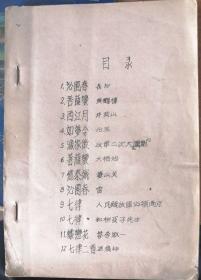 目录
1. 沁园春 长沙
2. 菩萨蛮 黄鹤楼
3. 西江月 井冈山
4. 如梦令 元旦
5. 渔家傲 反第二次大围剿
6. 菩萨蛮 大柏地
7. 忆秦娥 娄山关
8. 沁园春 雪
9. 七律 人民解放军占领南京
10. 七律 和柳亚子先生
11. 蝶恋花 答李淑一
12. 七律二首 送瘟神